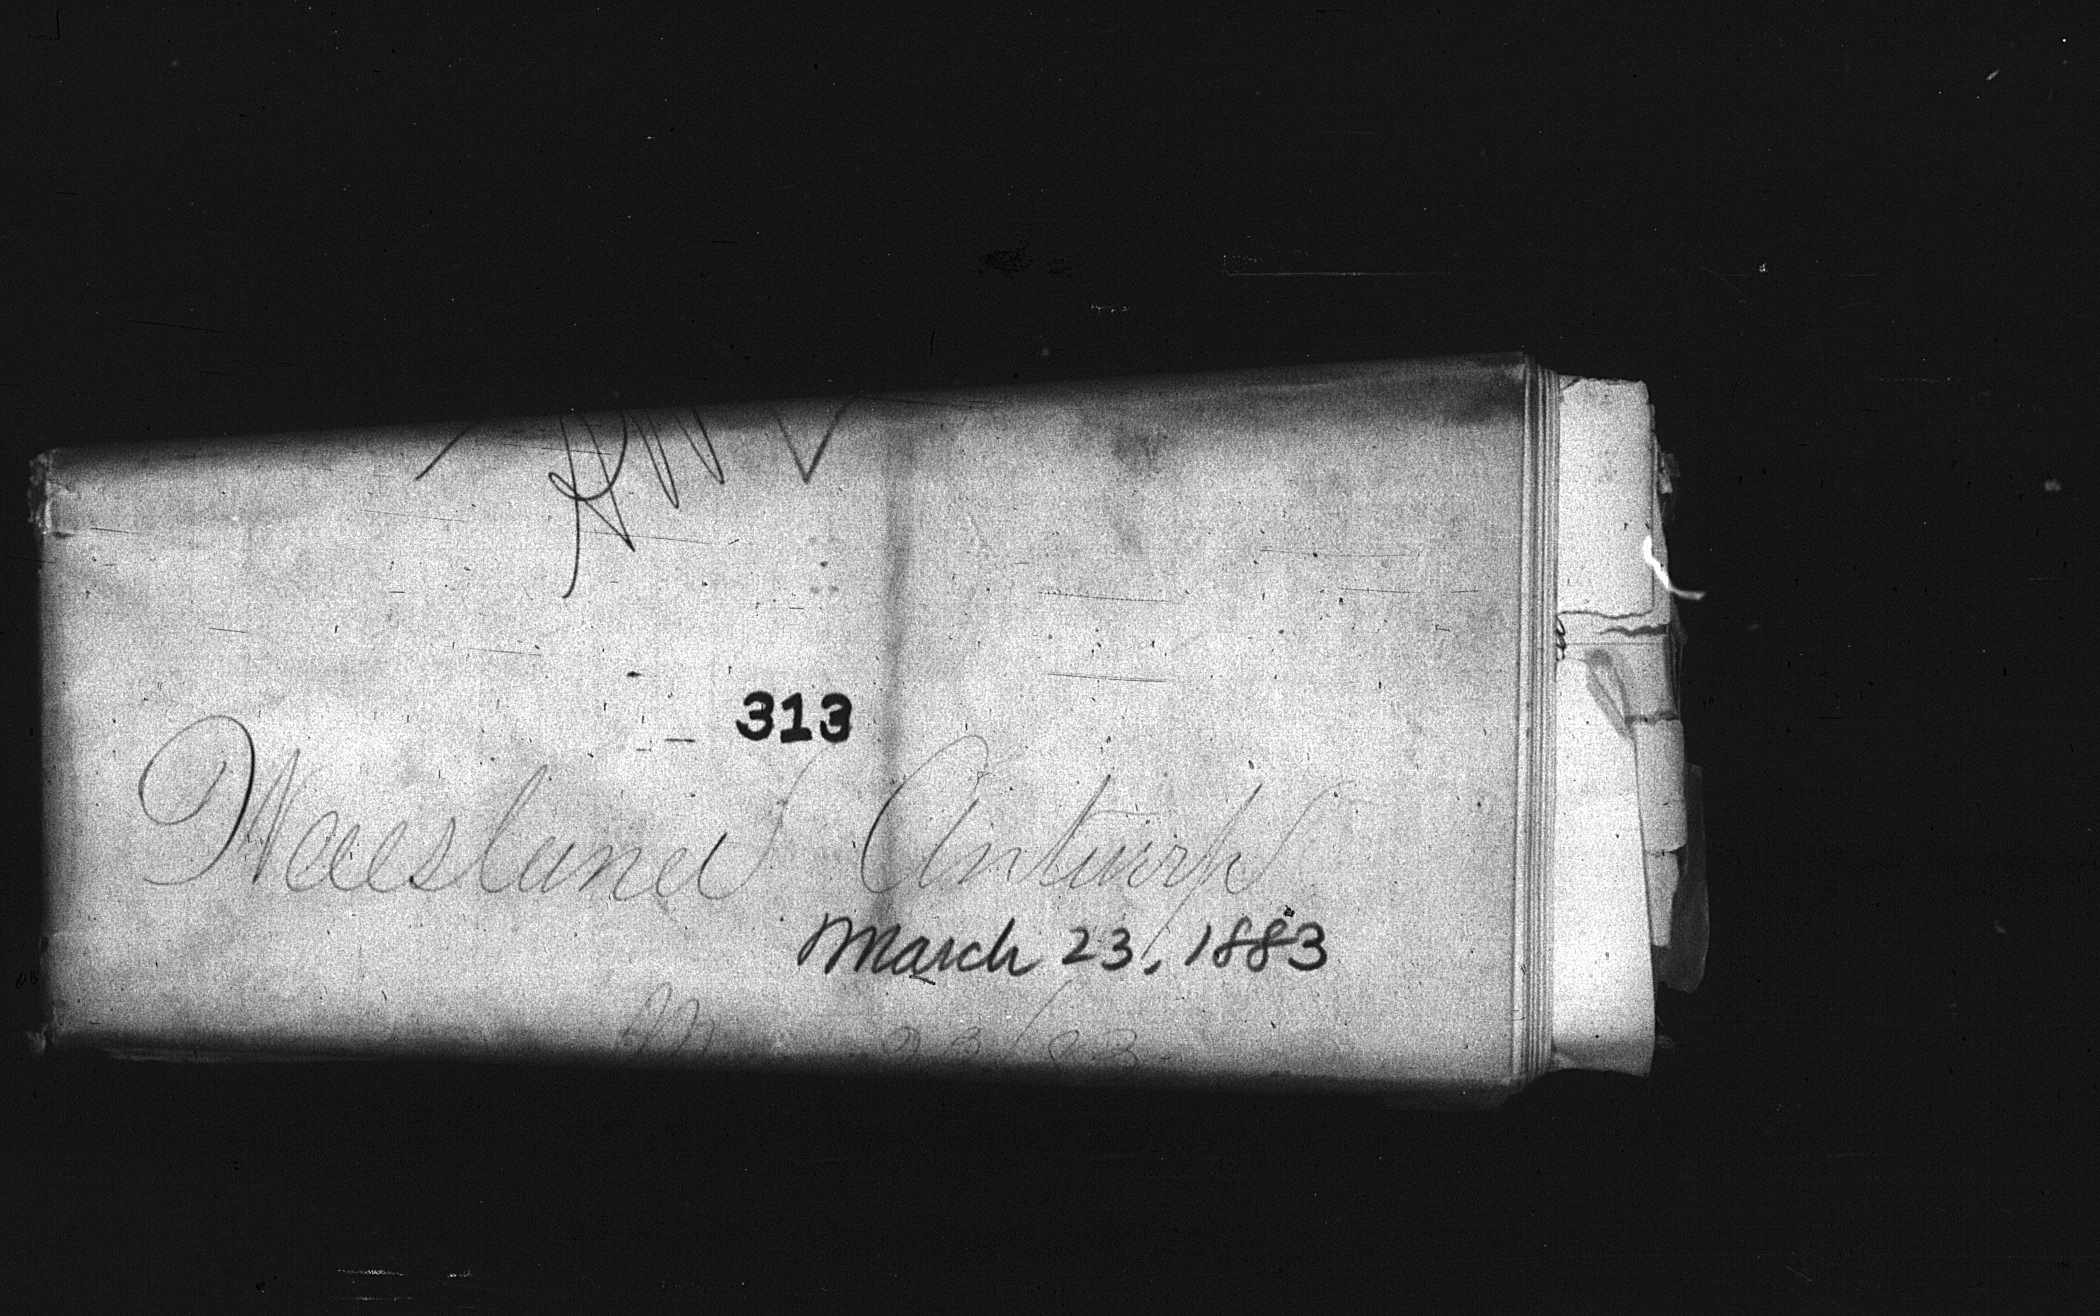 313
Waesland Antwerp
March 23, 1883
23/83